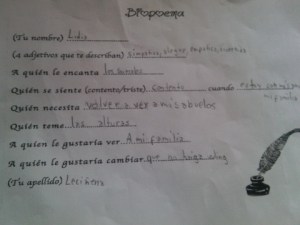 Biopoema
(Tu nombre) Lidia
(4 adjetivos que te describan) simpatica, alegre,
A quién le encanta los animales
Quién se siente (contento/triste) contento cuando
Quién necesita volver a ver a mis abuelos
Quién teme las alturas
A quien le gustaría ver A mi familia
A quién le gustaría cambiar que no haiga
(Tu apellido)